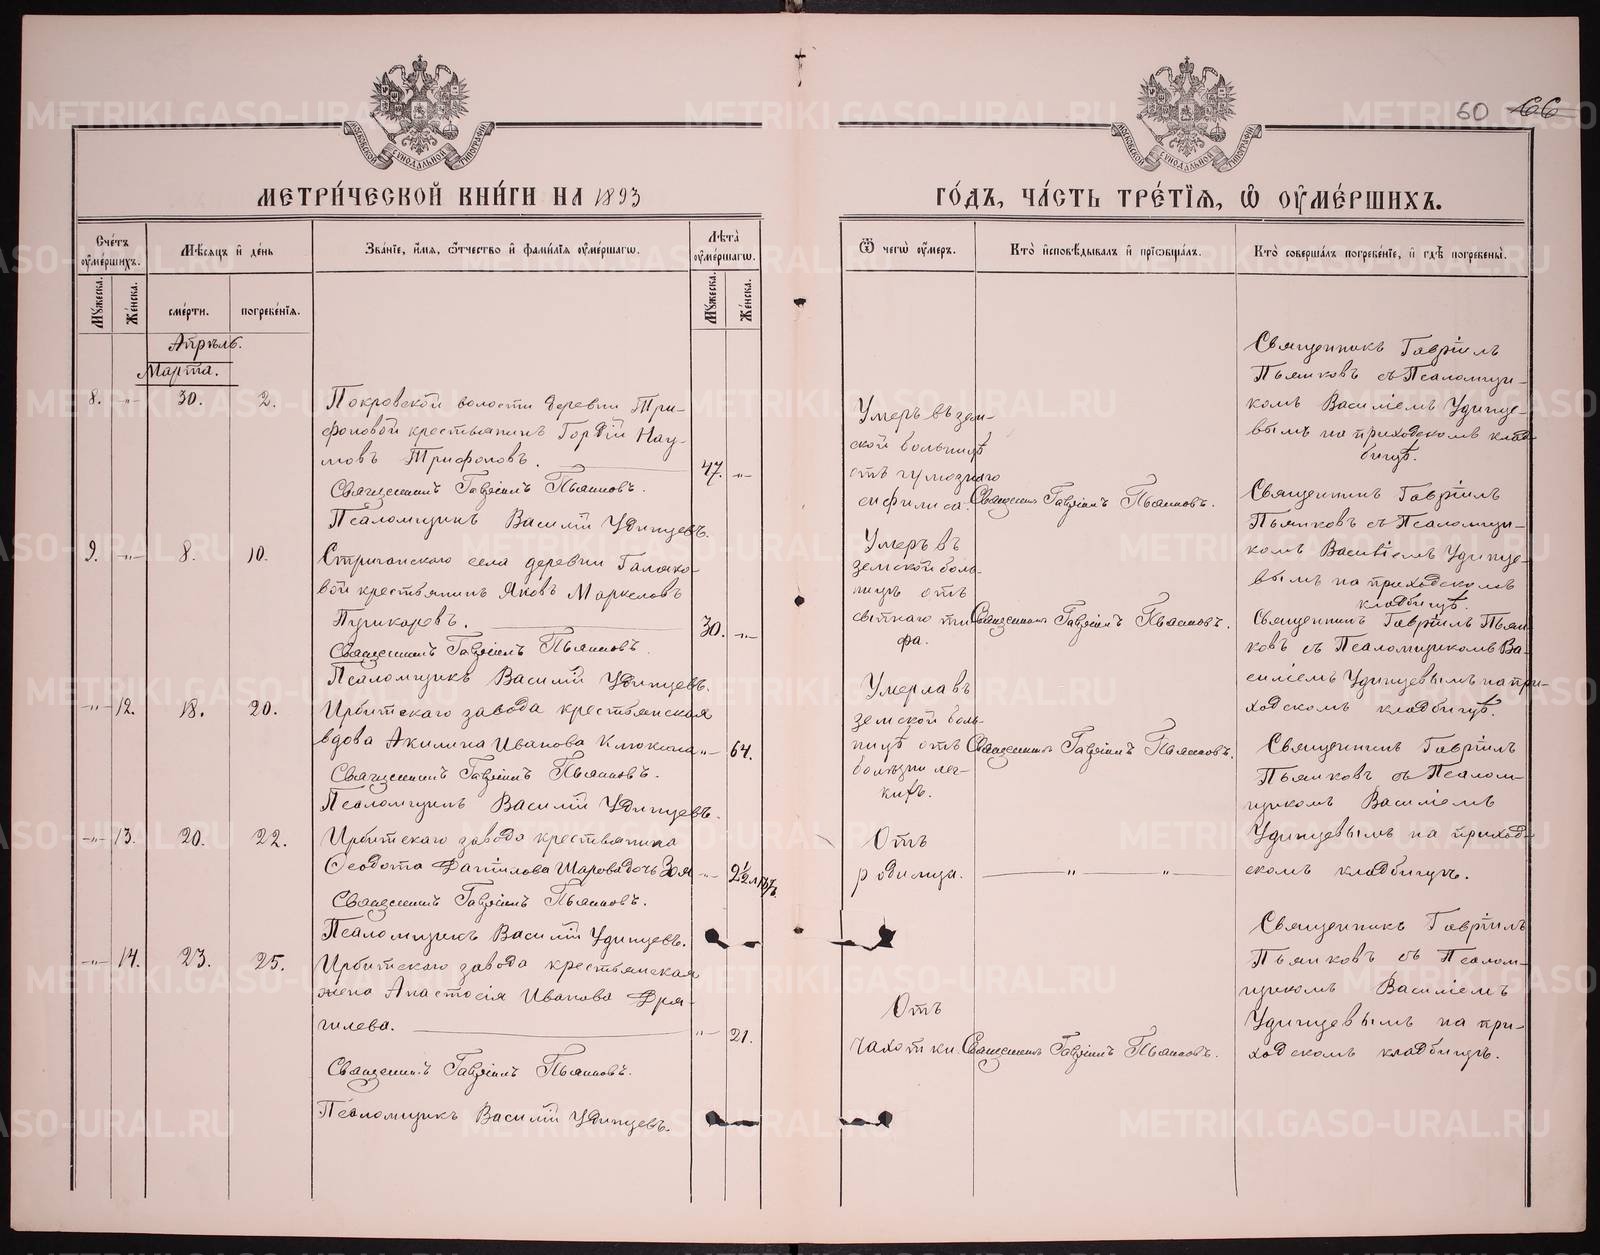 60 66
МЕТРИ́ЧЕСКОЙ КНИ́ГИ НА 1893
ГО́ДЪ, ЧА́СТЬ ТРЕ́ТЇѦ, Ѡ ОУМЕ́РШИХЪ.
Сче́тъ оуме́ршихъ.
Мѣ́сяцъ и де́нь
Зва́нїе, и́мя, ѻ҆́тчество и фами́лїя оуме́ршагѡ.
Лѣ́та оуме́ршагѡ.
Му́жеска.
Же́нска.
сме́рти.
погребе́нїя.
Му́жеска.
Же́нска.
Ѿ чегѡ̀ оу́меръ.
Кто̀ исповѣ́дывалъ и прїѡбща́лъ.
Кто̀ соверша́лъ погребе́нїе, и гдѣ̀ погребены̀.
Апрѣль.
Марта.
8. -„- 30. 2.
Покровской волости деревни Три-
фоновой крестьянинъ Гордій Нау-
мовъ Трифоновъ.
47. -„-
Священникъ Гавріилъ Пьянковъ.
Псаломщикъ Василій Удинцевъ.
Умеръ въ зем-
ской больницѣ
отъ гумознаго
сифилиса.
Священникъ Гавріилъ Пьянковъ.
Священникъ Гавріилъ
Пьянковъ съ Псаломщи-
комъ Василіемъ Удинце-
вымъ на приходскомъ клад-
бищѣ.
9. -„- 8. 10.
Стриганскаго села деревни Галяко-
вой крестьянинъ Яковъ Маркеловъ
Пушкаревъ.
30. -„-
Священникъ Гавріилъ Пьянковъ.
Псаломщикъ Василій Удинцевъ.
Умеръ въ
земской боль-
ницѣ отъ
сыпнаго ти-
фа.
Священникъ Гавріилъ Пьянковъ.
Священникъ Гавріилъ
Пьянковъ съ Псаломщи-
комъ Василіемъ Удинце-
вымъ на приходскомъ
кладбищѣ.
-„- 12. 18. 20.
Ирбитскаго завода крестьянская
вдова Акилина Иванова Клюкина
-„- 64.
Священникъ Гавріилъ Пьянковъ.
Псаломщикъ Василій Удинцевъ.
Умерла въ
земской боль-
ницѣ отъ
болѣзни лег-
кихъ.
Священникъ Гавріилъ Пьянковъ.
Священникъ Гавріилъ Пьян-
ковъ съ Псаломщикомъ Ва-
силіемъ Удинцевымъ на при-
ходскомъ кладбищѣ.
-„- 13. 20. 22.
Ирбитскаго завода крестьянина
Ѳеодота Данилова Шарова дочь Зоя
-„- 2½ лѣтъ.
Священникъ Гавріилъ Пьянковъ.
Псаломщикъ Василій Удинцевъ.
Отъ
родимца.
-„- -„-
Священникъ Гавріилъ
Пьянковъ съ Псалом-
щикомъ Василіемъ
Удинцевымъ на приход-
скомъ кладбищѣ.
-„- 14. 23. 25.
Ирбитскаго завода крестьянская
жена Анастасія Иванова Дря-
гилева.
-„- 21.
Священникъ Гавріилъ Пьянковъ.
Псаломщикъ Василій Удинцевъ.
Отъ
чахотки.
Священникъ Гавріилъ Пьянковъ.
Священникъ Гавріилъ
Пьянковъ съ Псалом-
щикомъ Василіемъ
Удинцевымъ на при-
ходскомъ кладбищѣ.
METRIKI.GASO-URAL.RU